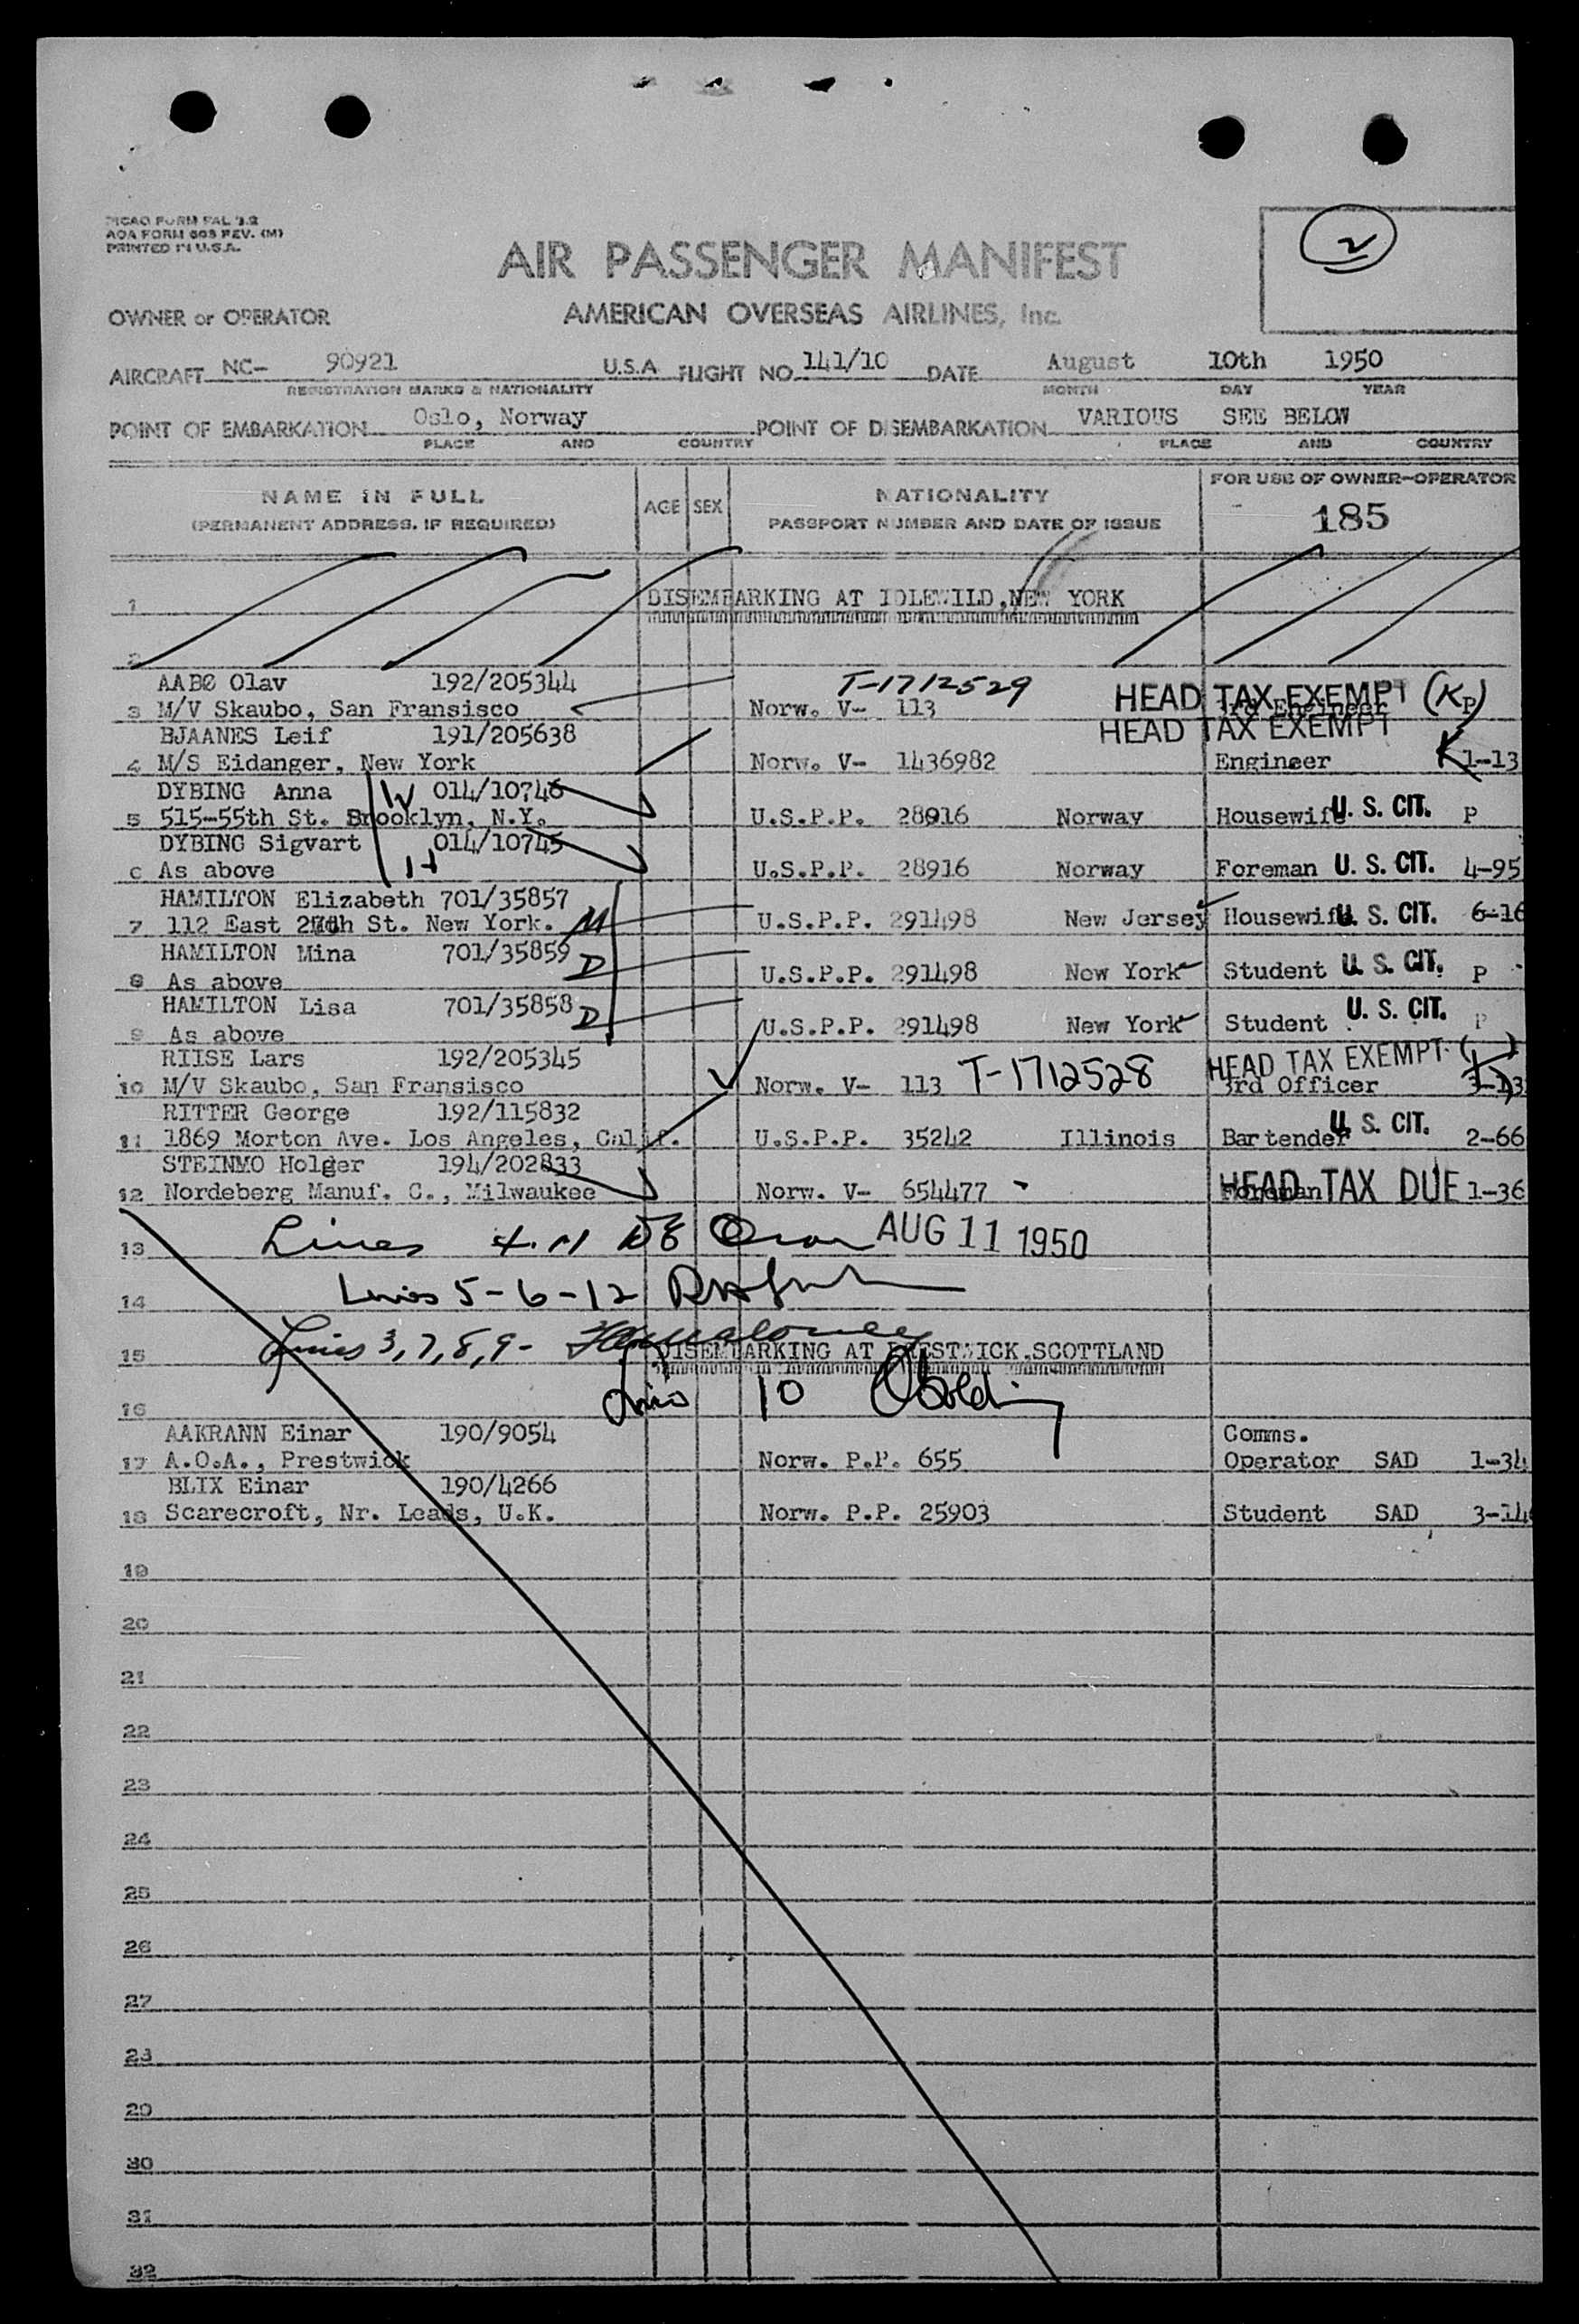 AOA FORM 603 REV. (M)
PRINTED IN U.S.A.
2
AIR PASSENGER MANIFEST
OWNER or OPERATOR AMERICAN OVERSEAS AIRLINES, Inc.
AIRCRAFT NC- 90921 U.S.A FLIGHT NO. 141/10 DATE August 10th 1950
REGISTRATION MARKS & NATIONALITY MONTH DAY YEAR
POINT OF EMBARKATION Oslo, Norway POINT OF DISEMBARKATION VARIOUS SEE BELOW
PLACE AND COUNTRY PLACE AND COUNTRY
NAME IN FULL AGE SEX NATIONALITY FOR USE OF OWNER-OPERATOR
(PERMANENT ADDRESS, IF REQUIRED) PASSPORT NUMBER AND DATE OF ISSUE 185
1 DISEMBARKING AT IDLEWILD, NEW YORK
2
AABØ Olav 192/205344 T-1712529 HEAD TAX EXEMPT (K P)
3 M/V Skaubo, San Fransisco Norw. V- 113 3rd Engineer
BJAANES Leif 191/205638 HEAD TAX EXEMPT
4 M/S Eidanger, New York Norw. V- 1436982 Engineer K 1-13
DYBING Anna W 014/10746
5 515-55th St. Brooklyn, N.Y. U.S.P.P. 28916 Norway Housewife U. S. CIT. P
DYBING Sigvart 014/10745
6 As above H U.S.P.P. 28916 Norway Foreman U. S. CIT. 4-95
HAMILTON Elizabeth 701/35857
7 112 East St. New York. M U.S.P.P. 291498 New Jersey Housewife U. S. CIT. 6-16
HAMILTON Mina 701/35859 D
8 As above U.S.P.P. 291498 New York Student U. S. CIT. P
HAMILTON Lisa 701/35858 D
9 As above U.S.P.P. 291498 New York Student U. S. CIT. P
RIISE Lars 192/205345 HEAD TAX EXEMPT
10 M/V Skaubo, San Fransisco Norw. V- 113 T-1712528 3rd Officer
RITTER George 192/115832
11 1869 Morton Ave. Los Angeles, Calif. U.S.P.P. 35242 Illinois Bartender U. S. CIT. 2-66
STEINMO Holger 194/202833
12 Nordeberg Manuf. C., Milwaukee Norw. V- 654477 Foreman HEAD TAX DUE 1-36
13 Lines 4.11 AUG 11 1950
14 Lines 5-6-12
15 Lines 3,7,8,9- DISEMBARKING AT PRESTWICK, SCOTTLAND
16 Line 10
AAKRANN Einar 190/9054 Comms.
17 A.O.A., Prestwick Norw. P.P. 655 Operator SAD 1-34
BLIX Einar 190/4266
18 Scarecroft, Nr. Leads, U.K. Norw. P.P. 25903 Student SAD 3-14
19
20
21
22
23
24
25
26
27
28
29
30
31
32